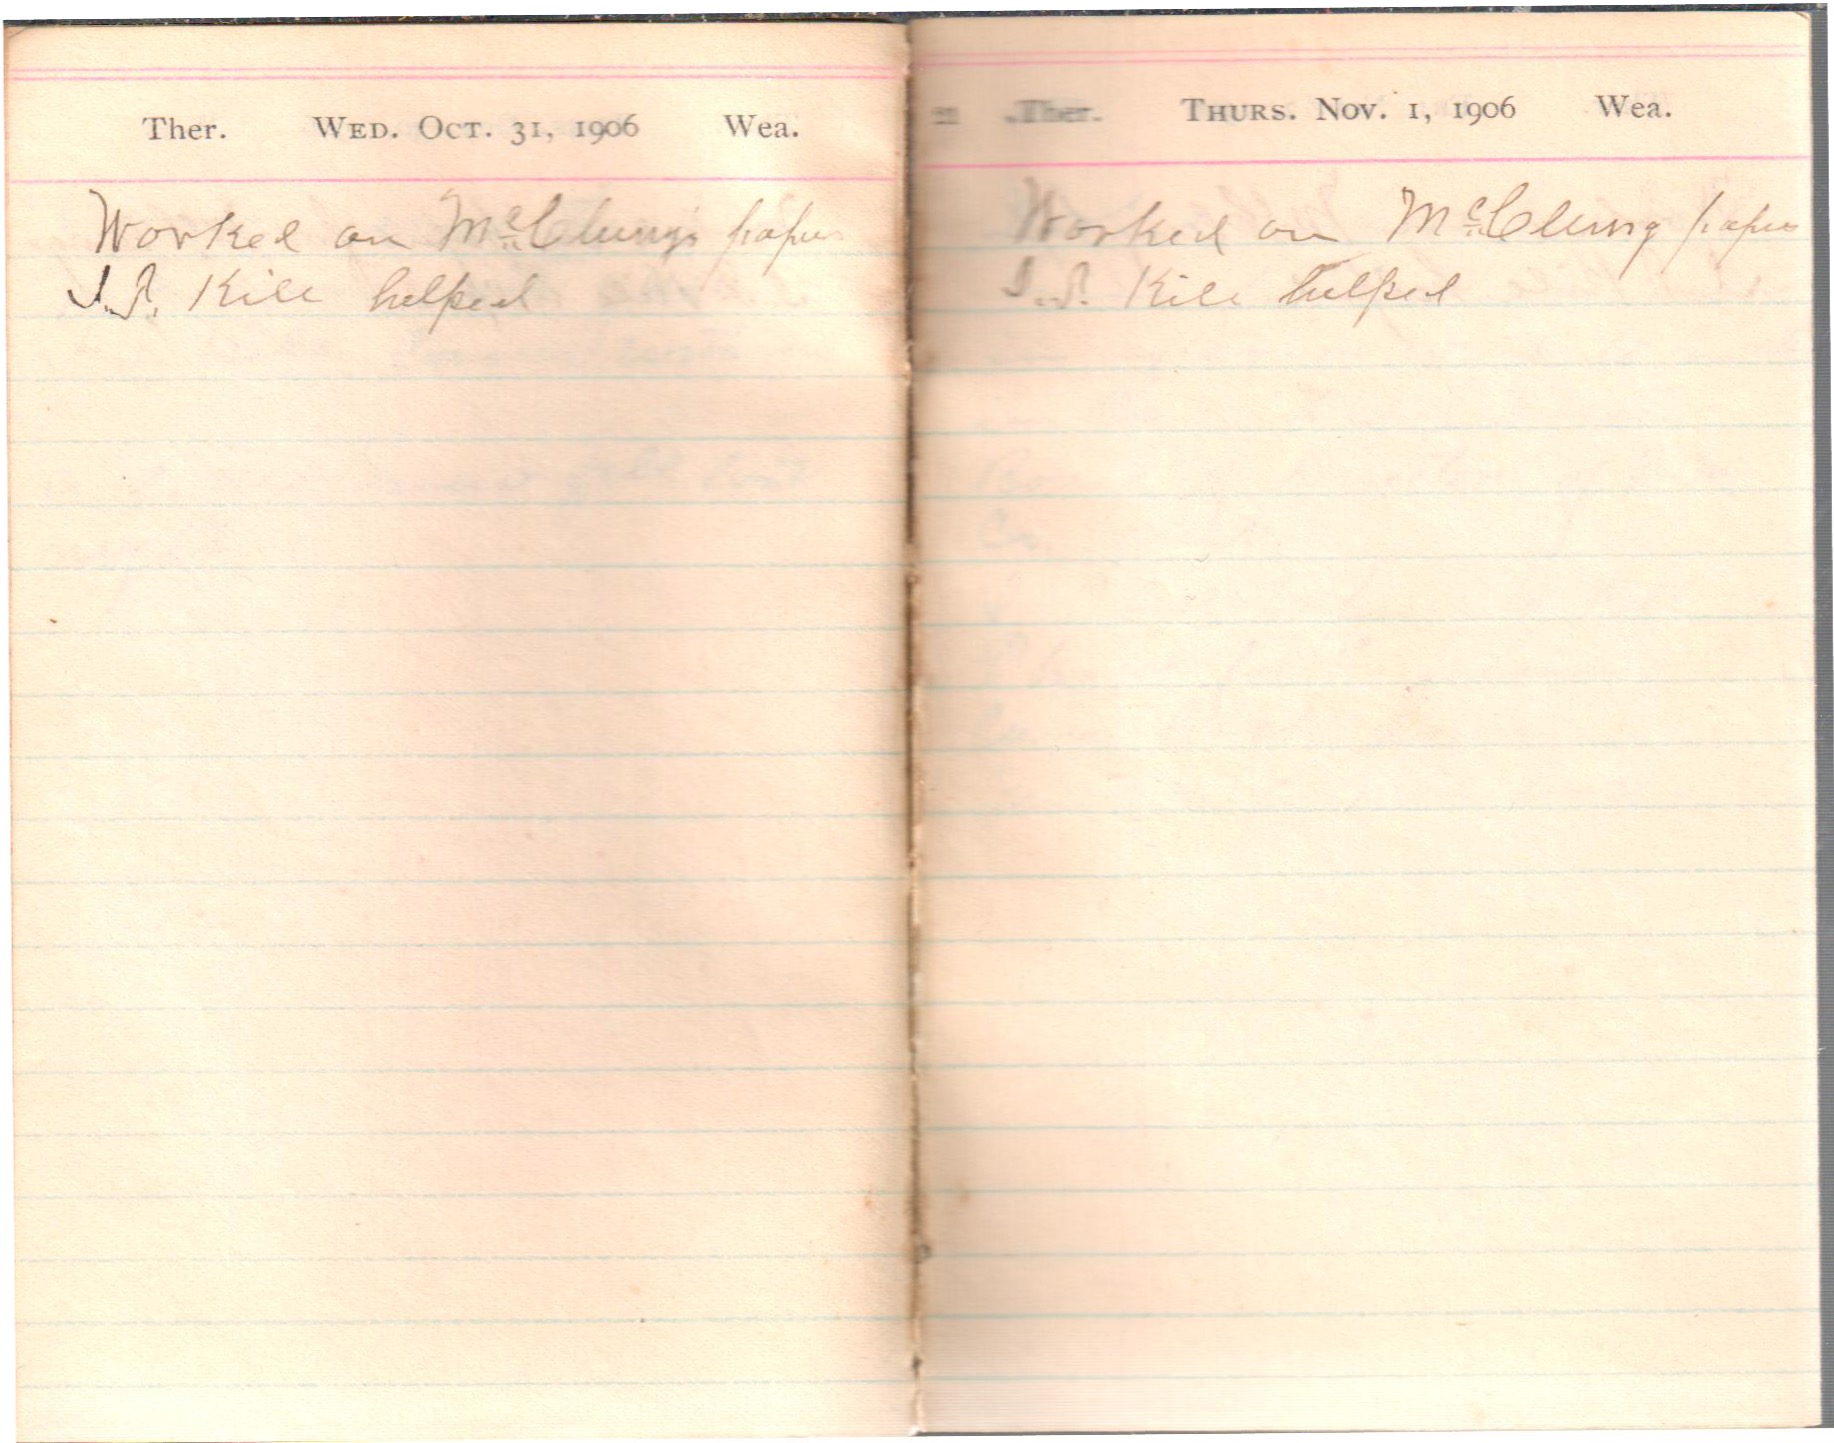 Ther. Wed. Oct. 31, 1906 Wea.
Worked on McClung's papers
Kile helped
Ther. Thurs. Nov. 1, 1906 Wea.
Worked on McClung papers
Kile helped